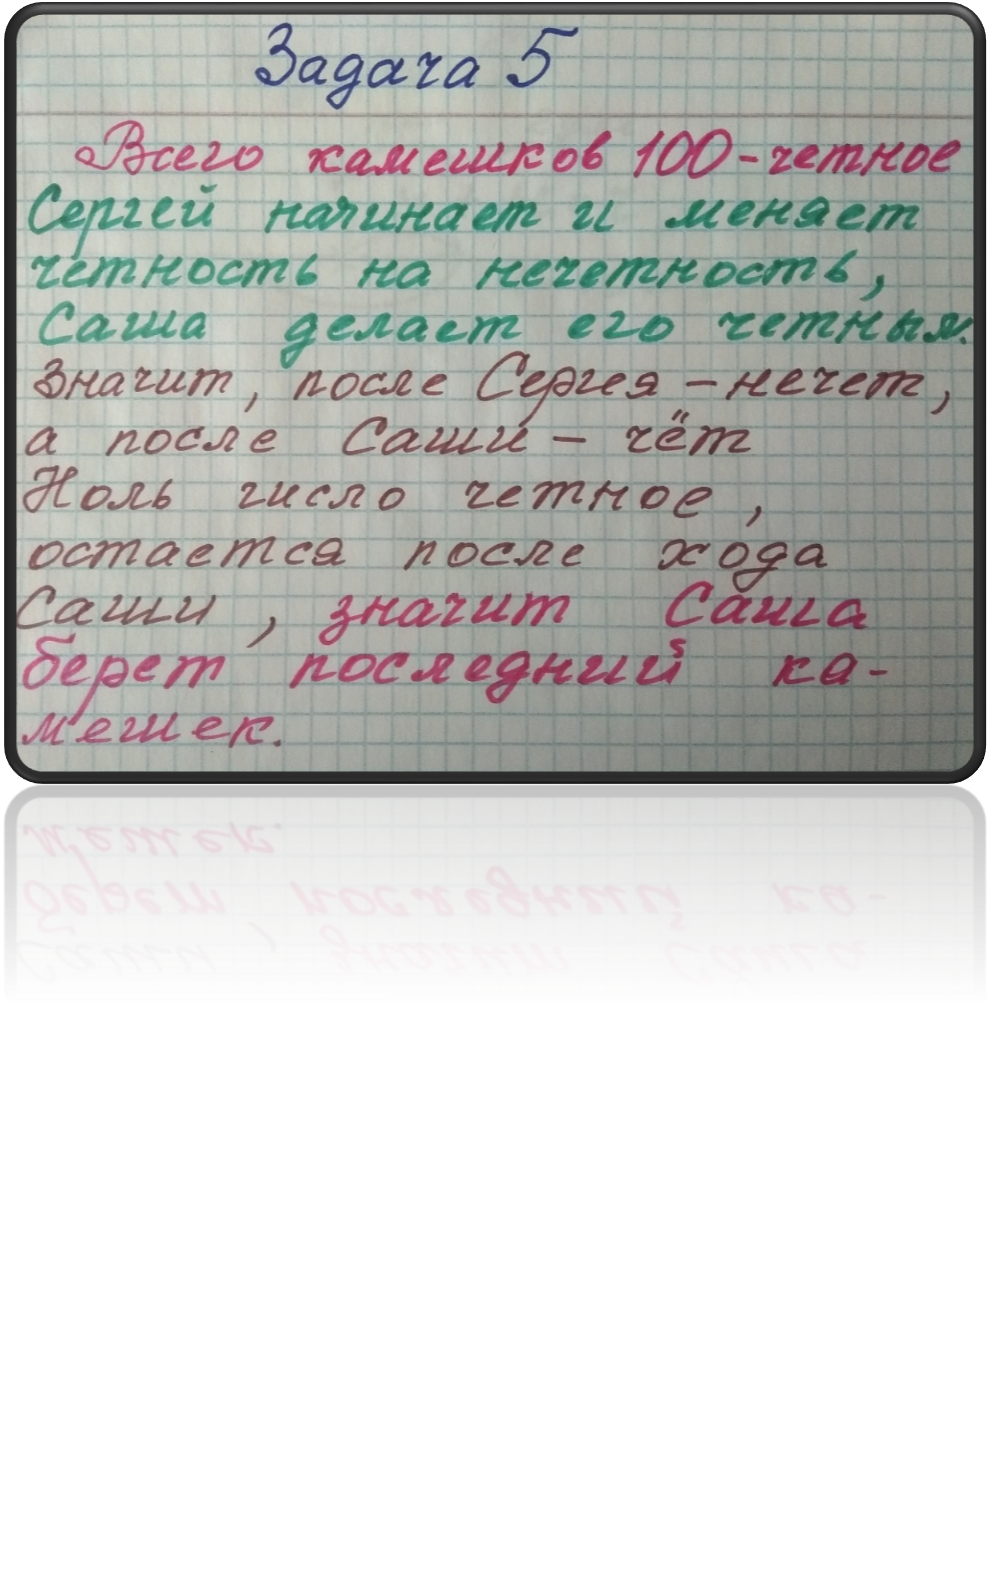 Задача 5
Всего камешков 100-четное
Сергей начинает и меняет
четность на нечетность,
Саша делает его четным.
Значит, после Сергея - нечет,
а после Саши - чёт
Ноль число четное,
остается после хода
Саши, значит Саша
берет последний ка-
мешек.